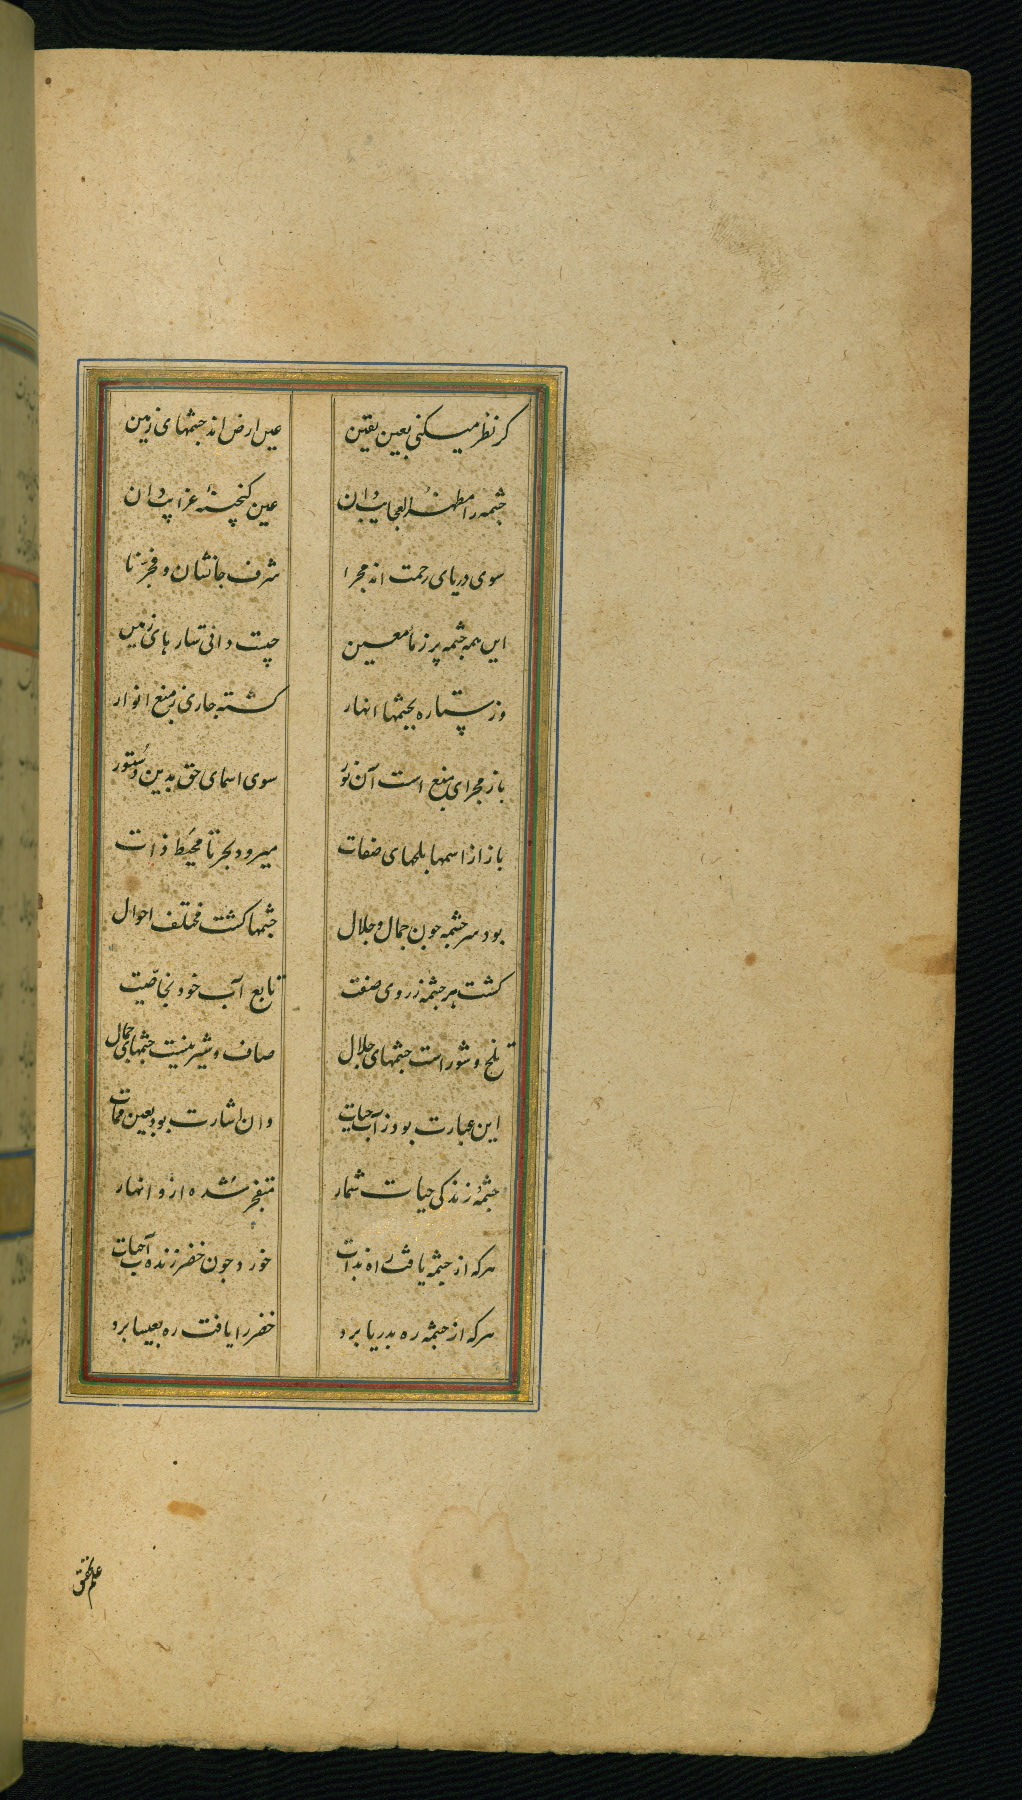 کر نظر میکنی بعین یقین عین ارض اند جشمهای زمین
جشمه را مظهر العجایب دان عین کنجینه غرایب دان
سوی دریای رحمت اند مجرا شرف جانشان و فجرنا
این همه جشمه پر ز ماء معین جیست دانی ستارهای زمین
وز ستاره بجشمها انهار کشته جاری ز منبع انوار
باز مجرای منبع است آن نور سوی اسمای حق بدین دستور
باز از اسمها بلجهای صفات میرود بحر تا محیط ذات
بود سر جشمه جون جمال و جلال جشمها کشت مختلف احوال
کشت هر جشمه ز روی صفت تابع آب خود بخاصیت
تلخ و شور است جشمهای جلال صاف و شیرینست جشمهای جمال
این عبارت بود ز آب حیات وان اشارت بود بعین ممات
جشمه زندکی حیات شمار متفجر شده ازو انهار
هرکه از جشمه یافت راه بذات خورد جون خضر زنده آب حیات
هرکه از جشمه ره بدریا برد خضر را یافت ره بعیسا برد
علم تحقیق